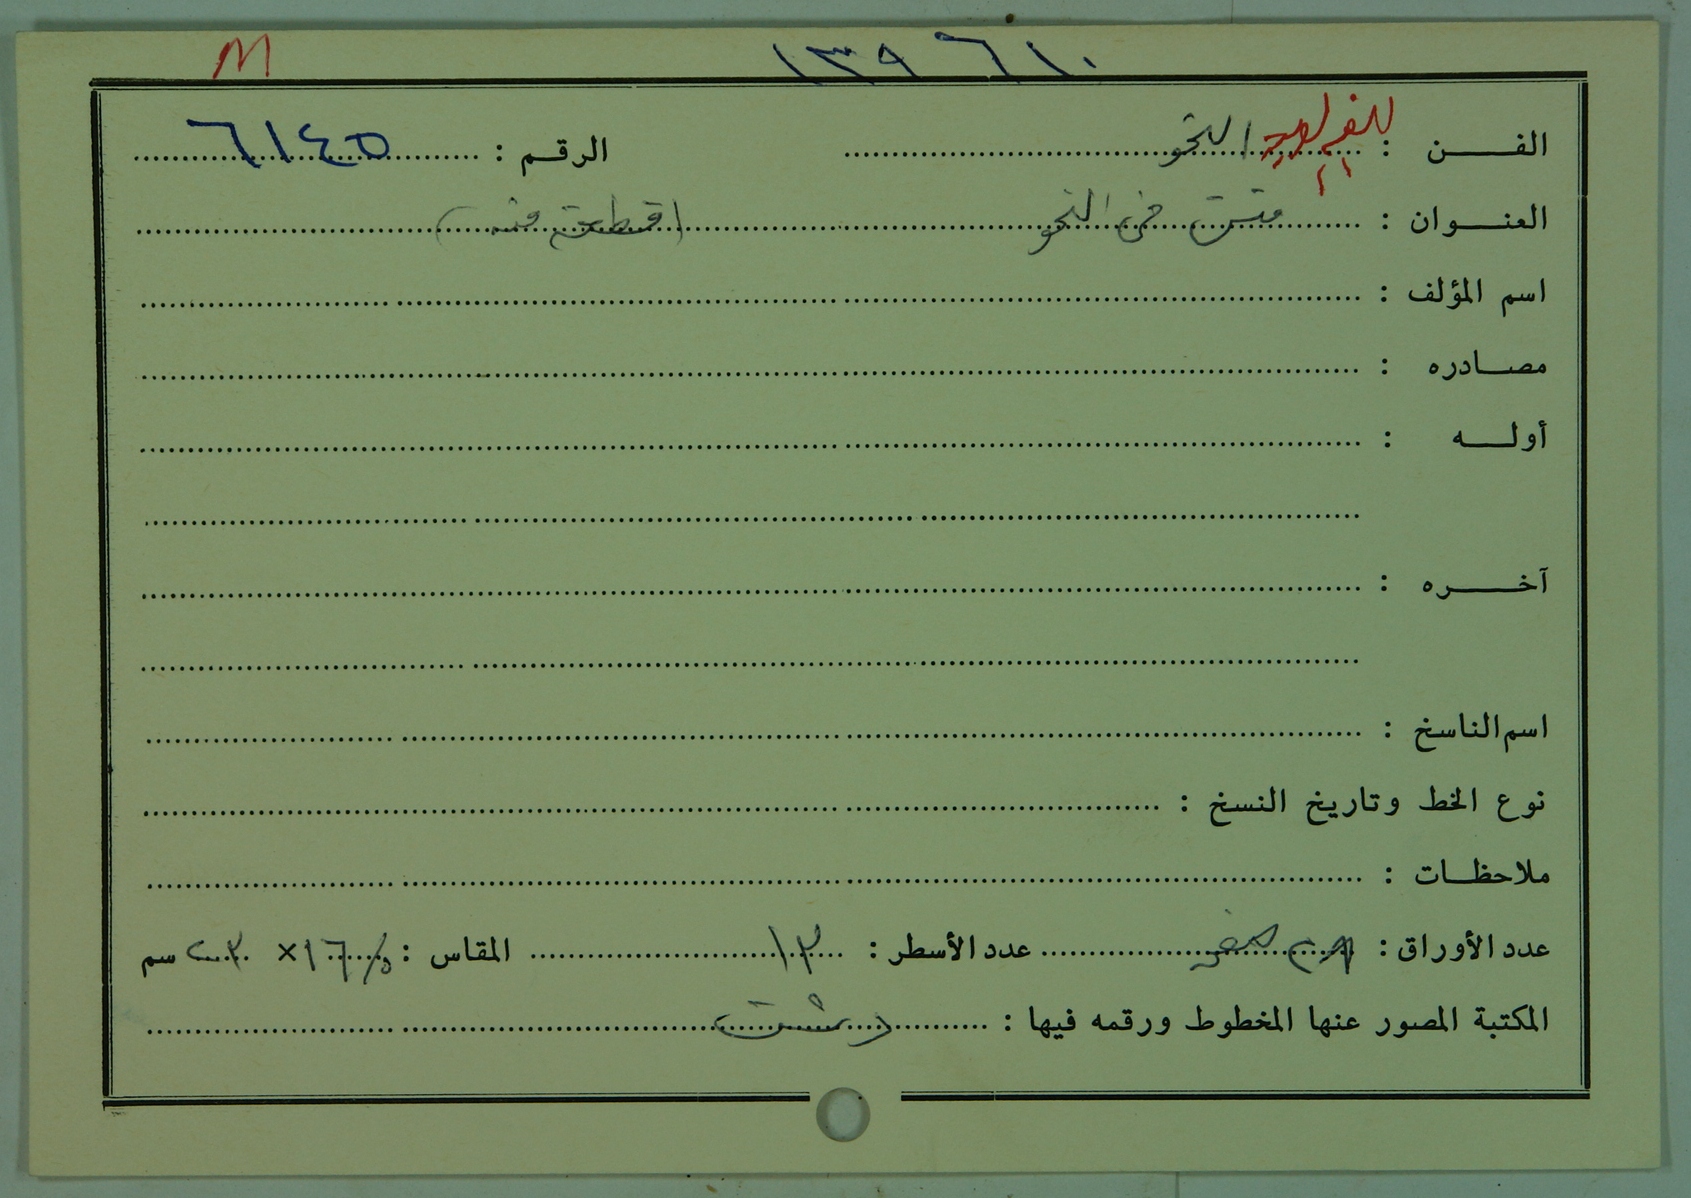 M ١٣٩ ٦١٠
الفن : النحو الرقم : ٦١٤٥
العنوان : متن في النحو (قطعة منه)
اسم المؤلف :
مصادره :
أوله :
آخره :
اسم الناسخ :
نوع الخط وتاريخ النسخ :
ملاحظات :
عدد الأوراق : عدد الأسطر : ١٣ المقاس : × سم
المكتبة المصور عنها المخطوط ورقمه فيها : دشت